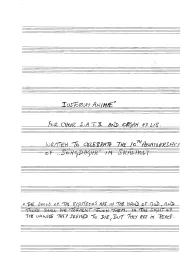 "JUSTORUM ANIMÆ"
FOR CHOIR S.A.T.B. AND ORGAN AD LIB.
WRITTEN TO CELEBRATE THE 10TH ANNIVERSARY
OF "
" IN
* THE SOULS OF THE RIGHTEOUS ARE IN THE HAND OF GOD, AND
THERE SHALL NO TORMENT TOUCH THEM. IN THE SIGHT OF
THE UNWISE THEY SEEMED TO DIE, BUT THEY ARE IN PEACE.